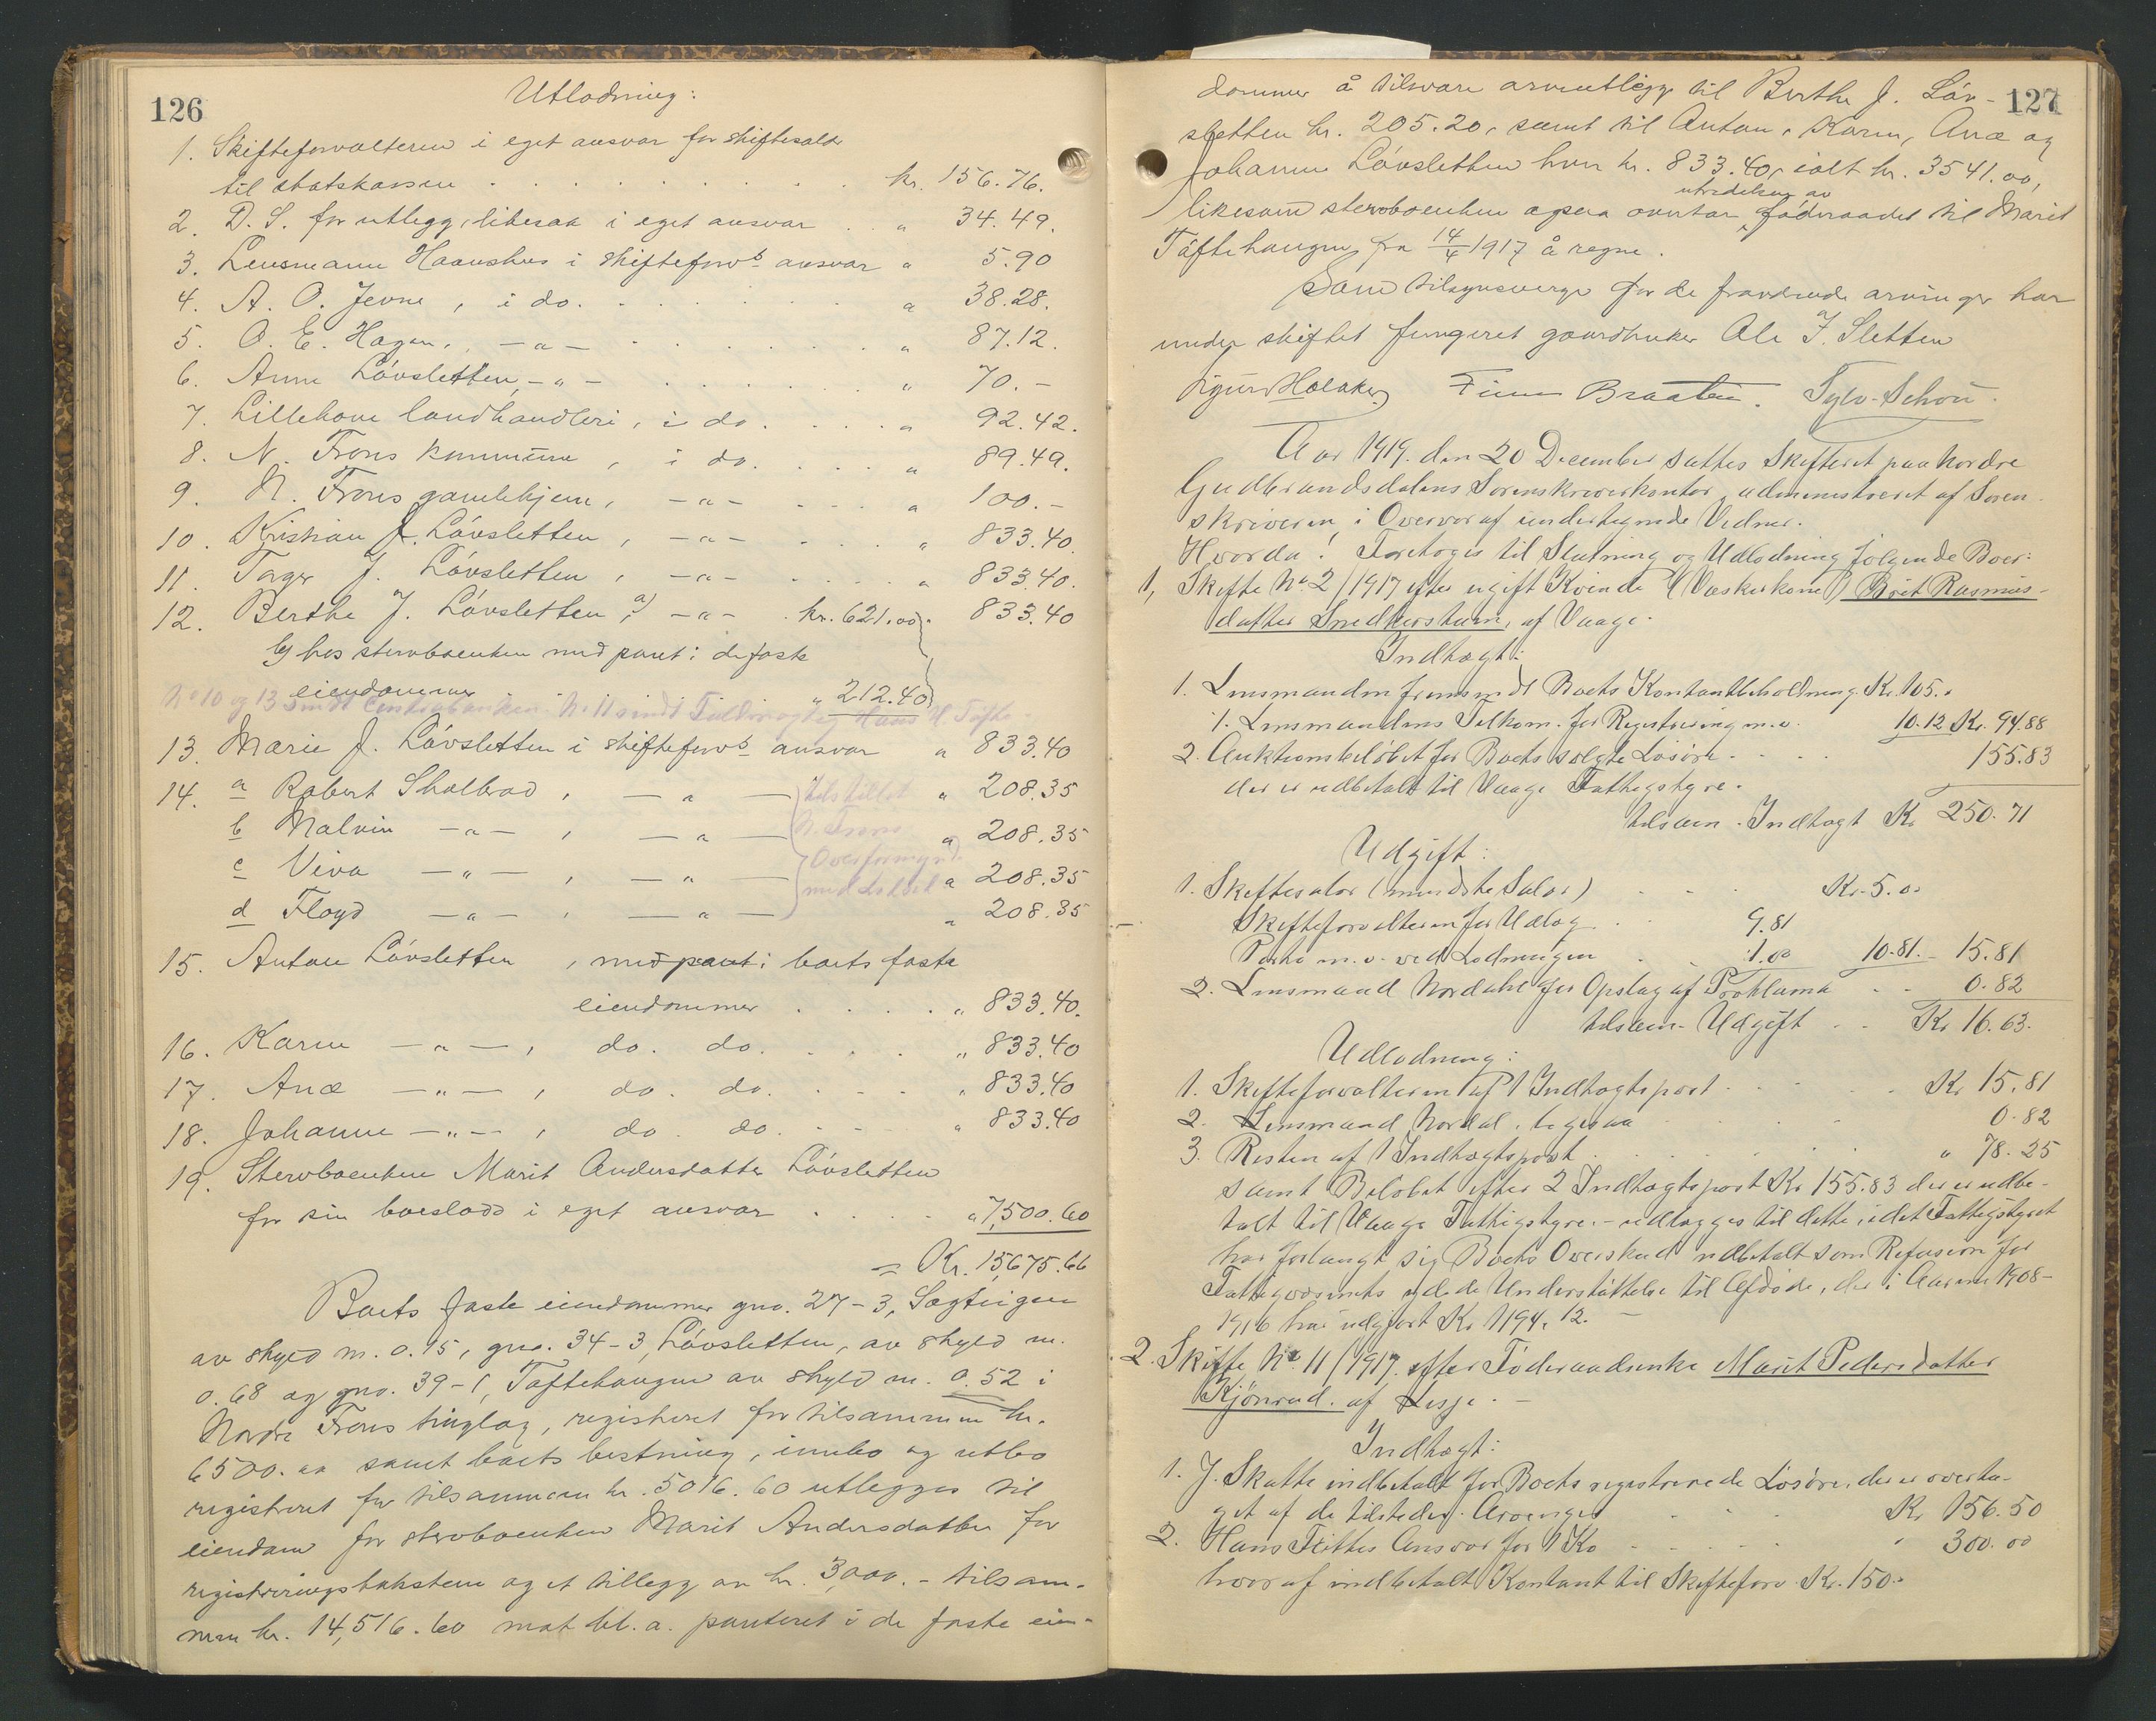 126
Utlodning:
1. Skifteforvalteren i eget ansvar for skiftesalær
til statskassen . . . . . . . . . . kr. 156.76.
2. D. S. for utlegg, likesaa i eget ansvar . . " 34.49.
3. Lensmann Haanshus i skifteforvs ansvar " 5.90
4. A. O. Jevne, i do. . . . . . . . " 38.28.
5. O. E. Hagen, -"- . . . . . . . " 87.12.
6. Anne Lövsletten, -"- . . . . . . " 70.-
7. Lillehove landhandleri, i do. . . . . " 92.42.
8. N. Frons kommune, i do. . . . . " 89.49.
9. N. Frons gamlehjem, -"- . . . . " 100.-
10. Kristian J. Lövsletten, -"- . . . . " 833.40.
11. Torger J. Lövsletten, -"- . . . . . " 833.40.
12. Berthe J. Lövsletten, a) -"- . kr. 621.00 " 833.40
b) hos stervboenken med pant i de faste
eiendommer . . . . . " 212.40
No 10 og 13 sendt Centralbanken. No 11 sendt Hans H. Töfte.
13. Marie J. Lövsletten i skifteforvs ansvar " 833.40
14. a Robert Skalbrad, - " - tilstillet " 208.35
b Malvin -"-, - " - N. Frons " 208.35
c Viva -"-, - " - Overformynd. " 208.35
d Floyd -"-, - " - " 208.35
15. Anton Lövsletten, med pant i boets faste
eiendommer . . . . . " 833.40.
16. Karen -"-, do. do. . . . . " 833.40
17. Anæ -"-, do. do. . . . . " 833.40
18. Johanne -"-, do. do. . . . . " 833.40
19. Stervboenken Marit Andersdatter Lövsletten
for sin boeslodd i eget ansvar . . . . " 7,500.60
= Kr. 15,675.66
Boets faste eiendommer gno. 27-3, Sagteigen
av skyld m. 0.15, gno. 34-3, Lövsletten, av skyld m.
0.68 og gno. 39-1, Töftehaugen av skyld m. 0.52 i
Nordre Frons tinglag, registrert for tilsammen kr.
6500.00 samt boets besetning, innbo og utbo
registrert for tilsammen kr. 5016.60 utlegges til
eiendom for stervboenken Marit Andersdatter for
registreringstakstene og et tillegg av kr. 3,000.- tilsam-
men kr. 14,516.60 mot bl. a. panteret i de faste eien-
127
dommer å tilsvare arveutlegg til Berthe J. Löv-
sletten kr. 205.20, samt til Anton, Karen, Anæ og
Johanne Lövsletten hver kr. 833.40, ialt kr. 3541.00,
utredelsen av
likesom stervboenken ogsaa overtar föderaadet til Marit
Töftehaugen fra 14/4 1917 å regne.
Som tilsynsverge for de fraværende arvinger har
under skiftet fungeret gaardbruker Ole J. Sletten
Sigurd Holaker Finn Braaten. Sylv. Schou.
Aar 1919 den 20 December sattes Skifteret paa Nordre
Gudbrandsdalens Sorenskriverkontor, administreret af Soren-
skriveren i Overvær af undertegnede Vidner.
Hvorda: Foretoges til Slutning og Udlodning følgende Boer:
1, Skifte No 2/1917 efter ugift Kvinde (Vaskerkone) Brit Rasmus-
datter Snedkerstuen, af Vaage.
Indtægt:
1. Lensmanden fremsendt Boets Kontantbeholdning Kr. 105.-
÷ Lensmandens Tilkom. for Registrering m.v. 10.12 Kr. 94.88
2. Auktionsbeløbet for Boets solgte Løsøre . . . . 155.83
der er udbetalt til Vaage Fattigstyre.
tilsam. Indtægt Kr. 250.71
Udgift:
1. Skiftesalær (mindste Salær) . . . Kr. 5.00
Skifteforvalteren for Udlæg . . 9.81
Porto m.v. ved Lodningen . . 1.00 10.81 - 15.81
2. Lensmand Nordahl for Opslag af Proklama . . 0.82
tilsam. Udgift . . Kr. 16.63.
Udlodning:
1. Skifteforvalteren af 1 Indtægtspost . . . . . Kr. 15.81
2. Lensmand Nordal, ligesaa . . . . . 0.82
3. Resten af 1 Indtægtspost . . . . . " 78.25
samt Beløbet efter 2 Indtægtspost Kr. 155.83 der er udbe-
talt til Vaage Fattigstyre - udlægges til dette, idet Fattigstyret
har forlangt sig Boets Overskud udbetalt som Refusion for
Fattigvæsenets ydede Understøttelse til Afdøde, der i Aarene 1908-
1916 har udgjort Kr. 1194.12. -
2. Skifte No 11/1917 efter Föderaadsenke Marit Pedersdatter
Kjönrud. af Lesje. -
Indtægt:
1. J. Skotte indbetalt for Boets registrerede Løsøre, der er overta-
get af de tilstedev. Arvinger . . . Kr. 156.50
2. Hans Flittes Ansvar for 1 Ko . . . . . " 300.00
hvoraf indbetalt Kontant til Skifteforv. Kr. 150.-